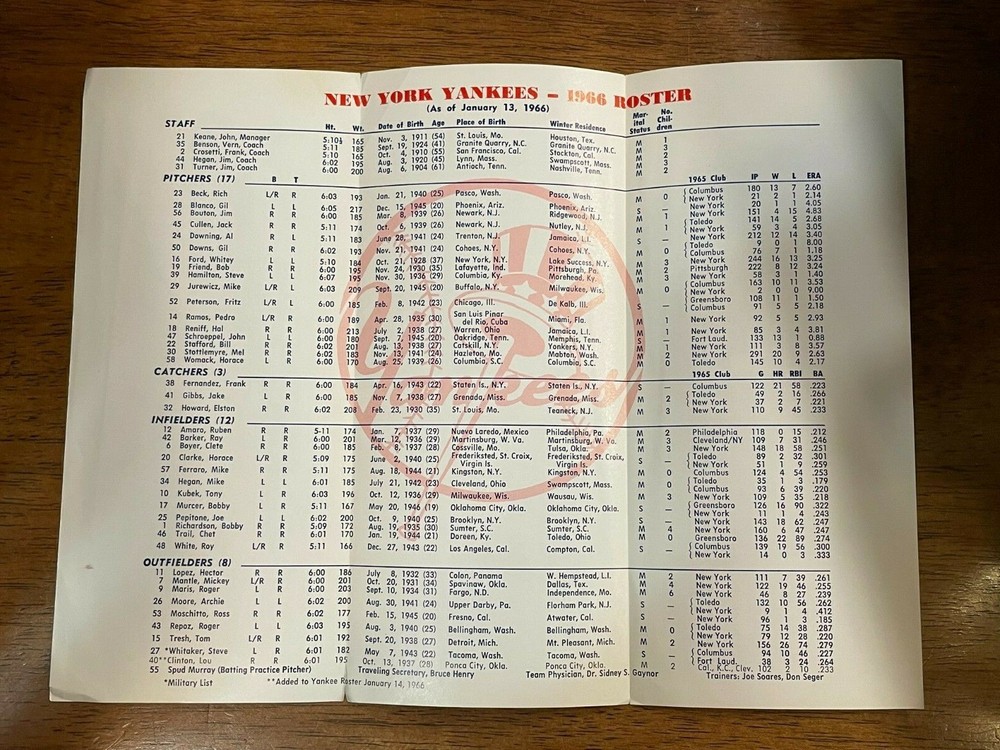 NEW YORK YANKEES – 1966 ROSTER
(As of January 13, 1966)
STAFF Ht. Wt. Date of Birth Age Place of Birth Winter Residence Marital Status No. Children
21 Keane, John, Manager 5:10½ 165 Nov. 3, 1911 (54) St. Louis, Mo. Houston, Tex. M 1
35 Benson, Vern, Coach 5:11 185 Sept. 19, 1924 (41) Granite Quarry, N.C. Granite Quarry, N.C. M 3
2 Crosetti, Frank, Coach 5:10 165 Oct. 4, 1910 (55) San Francisco, Cal. Stockton, Cal. M 2
44 Hegan, Jim, Coach 6:02 195 Aug. 3, 1920 (45) Lynn, Mass. Swampscott, Mass. M 3
31 Turner, Jim, Coach 6:00 200 Aug. 6, 1904 (61) Antioch, Tenn. Nashville, Tenn. M 2
PITCHERS (17) B T 1965 Club IP W L ERA
23 Beck, Rich L/R R 6:03 193 Jan. 21, 1940 (25) Pasco, Wash. Pasco, Wash. M 0 Columbus 180 13 7 2.60
New York 21 2 1 2.14
28 Blanco, Gil L L 6:05 217 Dec. 15, 1945 (20) Phoenix, Ariz. Phoenix, Ariz. S – New York 20 1 1 4.05
56 Bouton, Jim R R 6:00 185 Mar. 8, 1939 (26) Newark, N.J. Ridgewood, N.J. M 1 New York 151 4 15 4.83
45 Cullen, Jack R R 5:11 174 Oct. 6, 1939 (26) Newark, N.J. Nutley, N.J. M 1 Toledo 141 14 5 2.68
New York 59 3 4 3.05
24 Downing, Al R L 5:11 183 June 28, 1941 (24) Trenton, N.J. Jamaica, L.I. S – New York 212 12 14 3.40
50 Downs, Gil R R 6:02 193 Nov. 21, 1941 (24) Cohoes, N.Y. Cohoes, N.Y. M 0 Toledo 9 0 1 8.00
Columbus 76 7 1 1.18
16 Ford, Whitey L L 5:10 184 Oct. 21, 1928 (37) New York, N.Y. Lake Success, N.Y. M 3 New York 244 16 13 3.25
19 Friend, Bob R R 6:00 195 Nov. 24, 1930 (35) Lafayette, Ind. Pittsburgh, Pa. M 2 Pittsburgh 222 8 12 3.24
39 Hamilton, Steve L L 6:07 195 Nov. 30, 1936 (29) Columbia, Ky. Morehead, Ky. M 3 New York 58 3 1 1.40
29 Jurewicz, Mike L/R L 6:03 209 Sept. 20, 1945 (20) Buffalo, N.Y. Milwaukee, Wis. M 0 Columbus 163 10 11 3.53
New York 2 0 0 9.00
52 Peterson, Fritz L/R L 6:00 185 Feb. 8, 1942 (23) Chicago, Ill. De Kalb, Ill. S – Greensboro 108 11 1 1.50
Columbus 91 5 5 2.18
14 Ramos, Pedro L/R R 6:00 189 Apr. 28, 1935 (30) San Luis Pinar del Rio, Cuba Miami, Fla. M 1 New York 92 5 5 2.93
18 Reniff, Hal R R 6:00 213 July 2, 1938 (27) Warren, Ohio Jamaica, L.I. M 1 New York 85 3 4 3.81
47 Schroeppel, John L L 6:00 180 Sept. 7, 1945 (20) Oakridge, Tenn. Memphis, Tenn. S – Fort Laud. 133 13 1 0.88
22 Stafford, Bill R R 6:02 201 Aug. 13, 1938 (27) Catskill, N.Y. Yonkers, N.Y. M 1 New York 111 3 8 3.57
30 Stottlemyre, Mel R R 6:02 183 Nov. 13, 1941 (24) Hazleton, Mo. Mabton, Wash. M 2 New York 291 20 9 2.63
58 Womack, Horace L R 6:00 170 Aug. 25, 1939 (26) Columbia, S.C. Columbia, S.C. M 0 Toledo 145 10 4 2.17
CATCHERS (3) 1965 Club G HR RBI BA
38 Fernandez, Frank R R 6:00 184 Apr. 16, 1943 (22) Staten Is., N.Y. Staten Is., N.Y. S – Columbus 122 21 58 .223
41 Gibbs, Jake L R 6:00 185 Nov. 7, 1938 (27) Grenada, Miss. Grenada, Miss. M 2 Toledo 49 2 16 .266
New York 37 2 7 .221
32 Howard, Elston R R 6:02 208 Feb. 23, 1930 (35) St. Louis, Mo. Teaneck, N.J. M 3 New York 110 9 45 .233
INFIELDERS (12)
12 Amaro, Ruben R R 5-11 174 Jan. 7, 1937 (29) Nuevo Laredo, Mexico Philadelphia, Pa. M 2 Philadelphia 118 0 15 .212
42 Barker, Ray L R 6:00 201 Mar. 12, 1936 (29) Martinsburg, W. Va. Martinsburg, W. Va. M 3 Cleveland/NY 109 7 31 .246
6 Boyer, Clete R R 6:00 185 Feb. 8, 1937 (28) Cassville, Mo. Tulsa, Okla. M 3 New York 148 18 58 .251
20 Clarke, Horace L/R R 5:09 175 June 2, 1940 (25) Frederiksted, St. Croix, Virgin Is. Frederiksted, St. Croix, Virgin Is. S – Toledo 89 2 32 .301
New York 51 1 9 .259
57 Ferraro, Mike R R 5:11 175 Aug. 18, 1944 (21) Kingston, N.Y. Kingston, N.Y. M 0 Columbus 124 4 54 .253
34 Hegan, Mike L L 6:01 185 July 21, 1942 (23) Cleveland, Ohio Swampscott, Mass. M 0 Toledo 35 1 3 .179
Columbus 93 6 39 .220
10 Kubek, Tony L R 6:03 196 Oct. 12, 1936 (29) Milwaukee, Wis. Wausau, Wis. M 3 New York 109 5 35 .218
17 Murcer, Bobby L R 5:11 167 May 20, 1946 (19) Oklahoma City, Okla. Oklahoma City, Okla. S – Greensboro 126 16 90 .322
New York 11 1 4 .243
25 Pepitone, Joe L L 6:02 200 Oct. 9, 1940 (25) Brooklyn, N.Y. Brooklyn, N.Y. S – New York 143 18 62 .247
1 Richardson, Bobby R R 5:09 172 Aug. 19, 1935 (30) Sumter, S.C. Sumter, S.C. M 4 New York 160 6 47 .247
46 Trail, Chet L R 6:01 170 Jan. 19, 1944 (21) Doreen, Ky. Toledo, Ohio M 0 Greensboro 136 22 89 .274
48 White, Roy L/R R 5:11 166 Dec. 27, 1943 (22) Los Angeles, Cal. Compton, Cal. S – Columbus 139 19 56 .300
New York 14 0 3 .333
OUTFIELDERS (8)
11 Lopez, Hector R R 6:00 186 July 8, 1932 (33) Colon, Panama W. Hempstead, L.I. M 2 New York 111 7 39 .261
7 Mantle, Mickey L/R R 6:00 201 Oct. 20, 1931 (34) Spavinaw, Okla. Dallas, Tex. M 4 New York 122 19 46 .255
9 Maris, Roger L R 6:00 203 Sept. 10, 1934 (31) Fargo, N.D. Independence, Mo. M 6 New York 46 8 27 .239
26 Moore, Archie L L 6:02 200 Aug. 30, 1941 (24) Upper Darby, Pa. Florham Park, N.J. S – Toledo 132 10 56 .262
New York 9 1 4 .412
53 Moschitto, Ross R R 6:02 177 Feb. 15, 1945 (20) Fresno, Cal. Atwater, Cal. S – New York 96 1 3 .185
43 Repoz, Roger L L 6:03 195 Aug. 3, 1940 (25) Bellingham, Wash. Bellingham, Wash. M 0 Toledo 75 14 38 .287
New York 79 12 28 .220
15 Tresh, Tom L/R R 6:01 192 Sept. 20, 1938 (27) Detroit, Mich. Mt. Pleasant, Mich. M 2 New York 156 26 74 .279
27 *Whitaker, Steve L R 6:01 182 May 7, 1943 (22) Tacoma, Wash. Tacoma, Wash. S – Columbus 94 10 46 .227
Fort Laud. 38 3 24 .264
40**Clinton, Lou R R 6:01 195 Oct. 13, 1937 (28) Ponca City, Okla. Ponca City, Okla. M 2 Cal., K.C., Clev. 102 2 10 .233
55 Spud Murray (Batting Practice Pitcher) Traveling Secretary, Bruce Henry Team Physician, Dr. Sidney S. Gaynor Trainers: Joe Soares, Don Seger
*Military List **Added to Yankee Roster January 14, 1966
Yankees